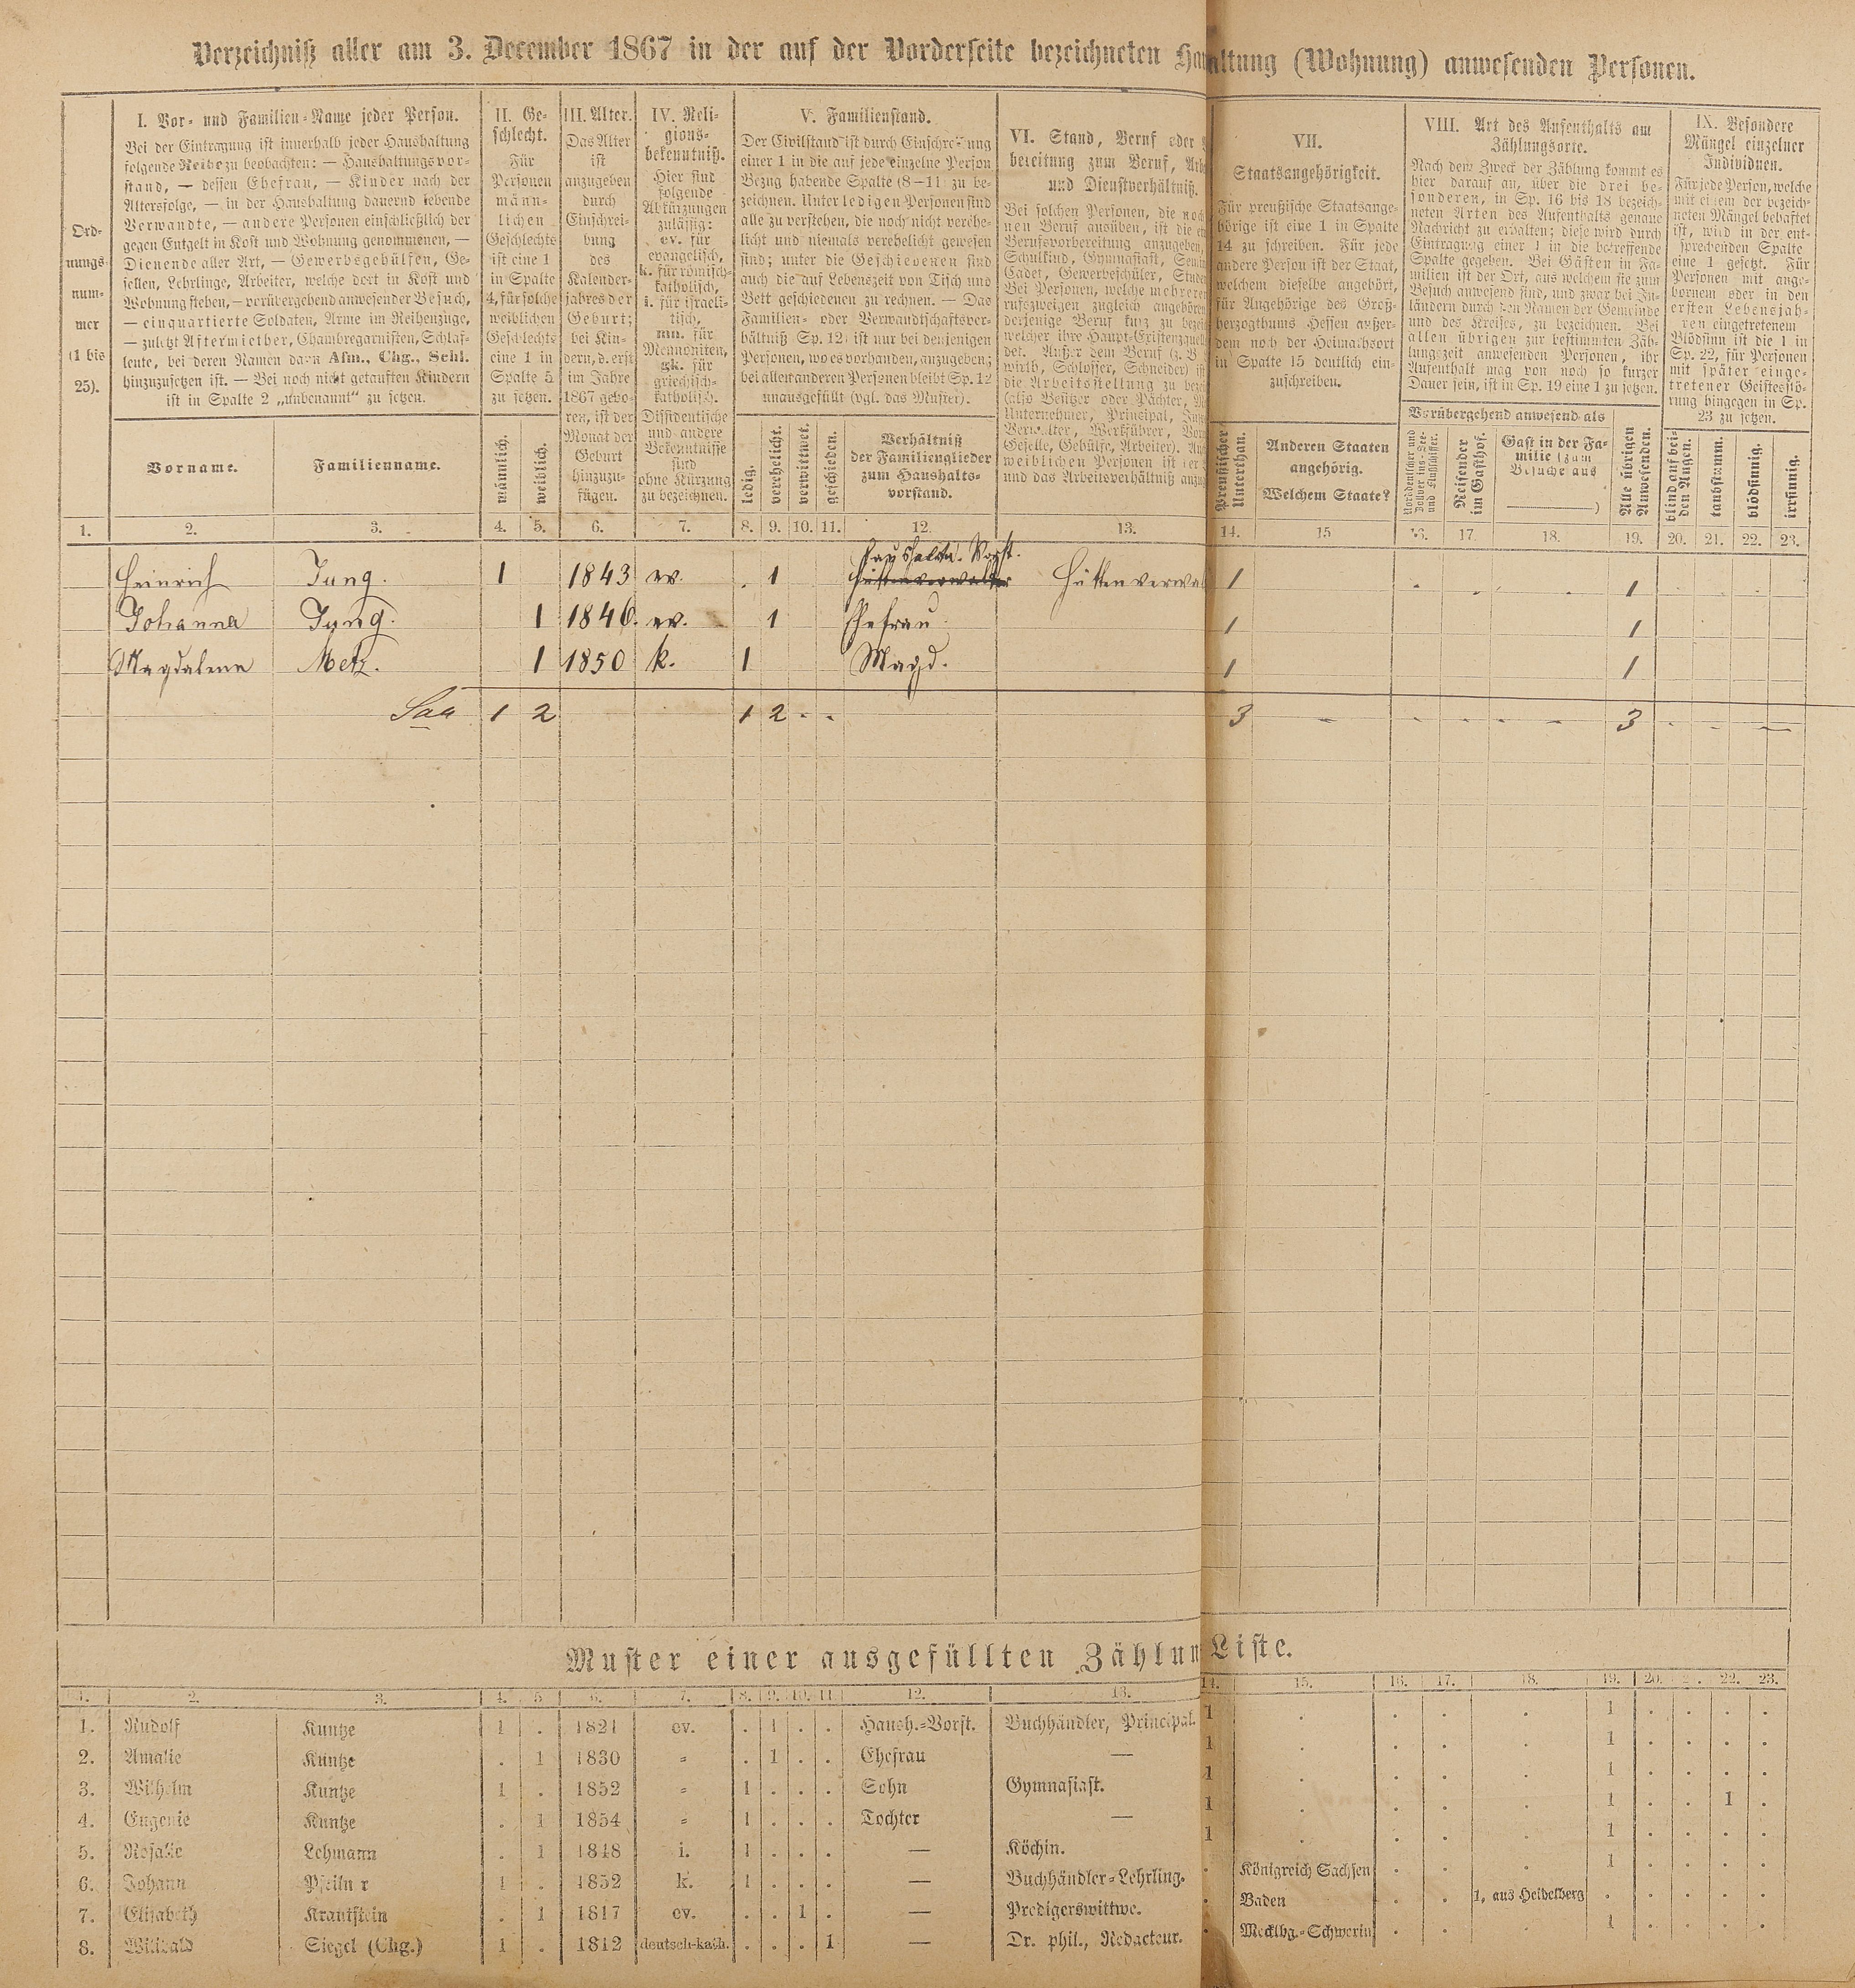 Verzeichniß aller am 3. December 1867 in der auf der Vorderseite bezeichneten Haushaltung (Wohnung) anwesenden Personen.
Ord-
nungs-
num-
mer
(1 bis
25).
I. Vor- und Familien-Name jeder Person.
Bei der Eintragung ist innerhalb jeder Haushaltung
folgende Reihe zu beobachten: — Haushaltungsvor-
stand, — dessen Ehefrau, — Kinder nach der
Altersfolge, — in der Haushaltung dauernd lebende
Verwandte, — andere Personen einschließlich der
gegen Entgelt in Kost und Wohnung genommenen, —
Dienende aller Art, — Gewerbsgehülfen, Ge-
sellen, Lehrlinge, Arbeiter, welche dort in Kost und
Wohnung stehen, — vorübergehend anwesender Besuch,
— einquartierte Soldaten, Arme im Reihenzuge,
— zuletzt Aftermiether, Chambregarnisten, Schlaf-
leute, bei deren Namen dann Afm., Chg., Schl.
hinzuzusetzen ist. — Bei noch nicht getauften Kindern
ist in Spalte 2 „unbenannt" zu setzen.
Vorname.
Familienname.
II. Ge-
schlecht.
Für
Personen
männ-
lichen
Geschlechts
ist eine 1
in Spalte
4, für solche
weiblichen
Geschlechts
eine 1 in
Spalte 5
zu setzen.
männlich.
weiblich.
III. Alter.
Das Alter
ist
anzugeben
durch
Einschrei-
bung
des
Kalender-
jahres der
Geburt;
bei Kin-
dern, d. erst
im Jahre
1867 gebo-
ren, ist der
Monat der
Geburt
hinzuzu-
fügen.
IV. Reli-
gions-
bekenntniß.
Hier sind
folgende
Abkürzungen
zulässig:
ev. für
evangelisch,
k. für römisch-
katholisch,
i. für israeli-
tisch,
mn. für
Mennoniten,
gk. für
griechisch-
katholisch.
Dissidentische
und andere
Bekenntnisse
sind
ohne Kürzung
zu bezeichnen.
V. Familienstand.
Der Civilstand ist durch Einschreibung
einer 1 in die auf jede einzelne Person
Bezug habende Spalte (8—11) zu be-
zeichnen. Unter ledigen Personen sind
alle zu verstehen, die noch nicht verehe-
licht und niemals verehelicht gewesen
sind; unter die Geschiedenen sind
auch die auf Lebenszeit von Tisch und
Bett geschiedenen zu rechnen. — Das
Familien- oder Verwandtschaftsver-
hältniß (Sp. 12) ist nur bei denjenigen
Personen, wo es vorhanden, anzugeben;
bei allen anderen Personen bleibt Sp. 12
unausgefüllt (vgl. das Muster).
ledig.
verehelicht.
verwittwet.
geschieden.
Verhältniß
der Familienglieder
zum Haushalts-
vorstand.
VI. Stand, Beruf oder
bereitung zum Beruf,
und Dienstverhältniß.
Bei solchen Personen, die noch
nen Beruf ausüben, ist die
Berufsvorbereitung anzugeben,
Schulkind, Gymnasiast,
Cadet, Gewerbeschüler,
Bei Personen, welche mehreren
rufszweigen zugleich angehören
derjenige Beruf kurz zu
welcher ihre Haupt-Existenzquelle
det. Außer dem Beruf (z. B.
wirth, Schlosser, Schneider)
die Arbeitsstellung zu
(also Besitzer oder Pächter,
Unternehmer, Principal,
Verwalter, Werkführer,
Geselle, Gehülfe, Arbeiter).
weiblichen Personen ist der
und das Arbeitsverhältniß
VII.
Staatsangehörigkeit.
Für preußische Staatsange-
hörige ist eine 1 in Spalte
14 zu schreiben. Für jede
andere Person ist der Staat,
welchem dieselbe angehört,
für Angehörige des Groß-
herzogthums Hessen außer-
dem noch der Heimathsort
in Spalte 15 deutlich ein-
zuschreiben.
Preußischer
Unterthan.
Anderen Staaten
angehörig.
Welchem Staate?
VIII. Art des Aufenthalts am
Zählungsorte.
Nach dem Zweck der Zählung kommt es
hier darauf an, über die drei be-
sonderen, in Sp. 16 bis 18 bezeich-
neten Arten des Aufenthalts genaue
Nachricht zu erhalten; diese wird durch
Eintragung einer 1 in die betreffende
Spalte gegeben. Bei Gästen in Fa-
milien ist der Ort, aus welchem sie zum
Besuch anwesend sind, und zwar bei In-
ländern durch den Namen der Gemeinde
und des Kreises, zu bezeichnen. Bei
allen übrigen zur bestimmten Zäh-
lungszeit anwesenden Personen, ihr
Aufenthalt mag von noch so kurzer
Dauer sein, ist in Sp. 19 eine 1 zu setzen.
Vorübergehend anwesend als
Norddeutscher und
Zollvereins-See-
und Flußschiffer.
Reisender
im Gasthof.
Gast in der Fa-
milie (zum
Besuche aus
)
Alle übrigen
Anwesenden.
IX. Besondere
Mängel einzelner
Individuen.
Für jede Person, welche
mit einem der bezeich-
neten Mängel behaftet
ist, wird in der ent-
sprechenden Spalte
eine 1 gesetzt. Für
Personen mit ange-
bornem oder in den
ersten Lebensjah-
ren eingetretenem
Blödsinn ist die 1 in
Sp. 22, für Personen
mit später einge-
tretener Geistesstö-
rung hingegen in Sp.
23 zu setzen.
blind auf bei-
den Augen.
taubstumm.
blödsinnig.
irrsinnig.
1. 2. 3. 4. 5. 6. 7. 8. 9. 10. 11. 12. 13. 14. 15 16. 17. 18. 19. 20. 21. 22. 23.
Haushalts. Vorst.
Heinrich Jung. 1 1843 ev. . 1 Hüttenverwalter Hüttenverwal 1 1
Johanna Jung. 1 1846. ev. 1 Ehefrau. 1 1
Magdalena Metz. 1 1850 k. 1 Magd. 1 1
Saa 1 2 1 2 - - 3 - - - - - 3 - - —
Muster einer ausgefüllten Zählun Liste.
1. 2. 3. 4. 5 6. 7. 8. 9. 10. 11. 12. 13. 14. 15. 16. 17. 18. 19. 20. 21. 22. 23.
1. Rudolf Kuntze 1 . 1821 ev. . 1 . . Haush.-Vorst. Buchhändler, Principal. 1 . . . . 1 . . . .
2. Amalie Kuntze . 1 1830 " . 1 . . Ehefrau — 1 . . . . 1 . . . .
3. Wilhelm Kuntze 1 . 1852 " 1 . . . Sohn Gymnasiast. 1 . . . . 1 . . . .
4. Eugenie Kuntze . 1 1854 " 1 . . . Tochter — 1 . . . . 1 . . 1 .
5. Rosalie Lehmann . 1 1848 i. 1 . . . — Köchin. 1 . . . . 1 . . . .
6. Johann Pfeilner 1 . 1852 k. 1 . . . — Buchhändler-Lehrling. . Königreich Sachsen . . . 1 . . . .
7. Elisabeth Krautstein . 1 1817 ev. . . 1 . — Predigerswittwe. . Baden . . 1, aus Heidelberg . . . . .
8. Willibald Siegel (Chg.) 1 . 1812 deutsch-kath. . . . 1 — Dr. phil., Redacteur. . Mecklbg.-Schwerin . . . 1 . . . .